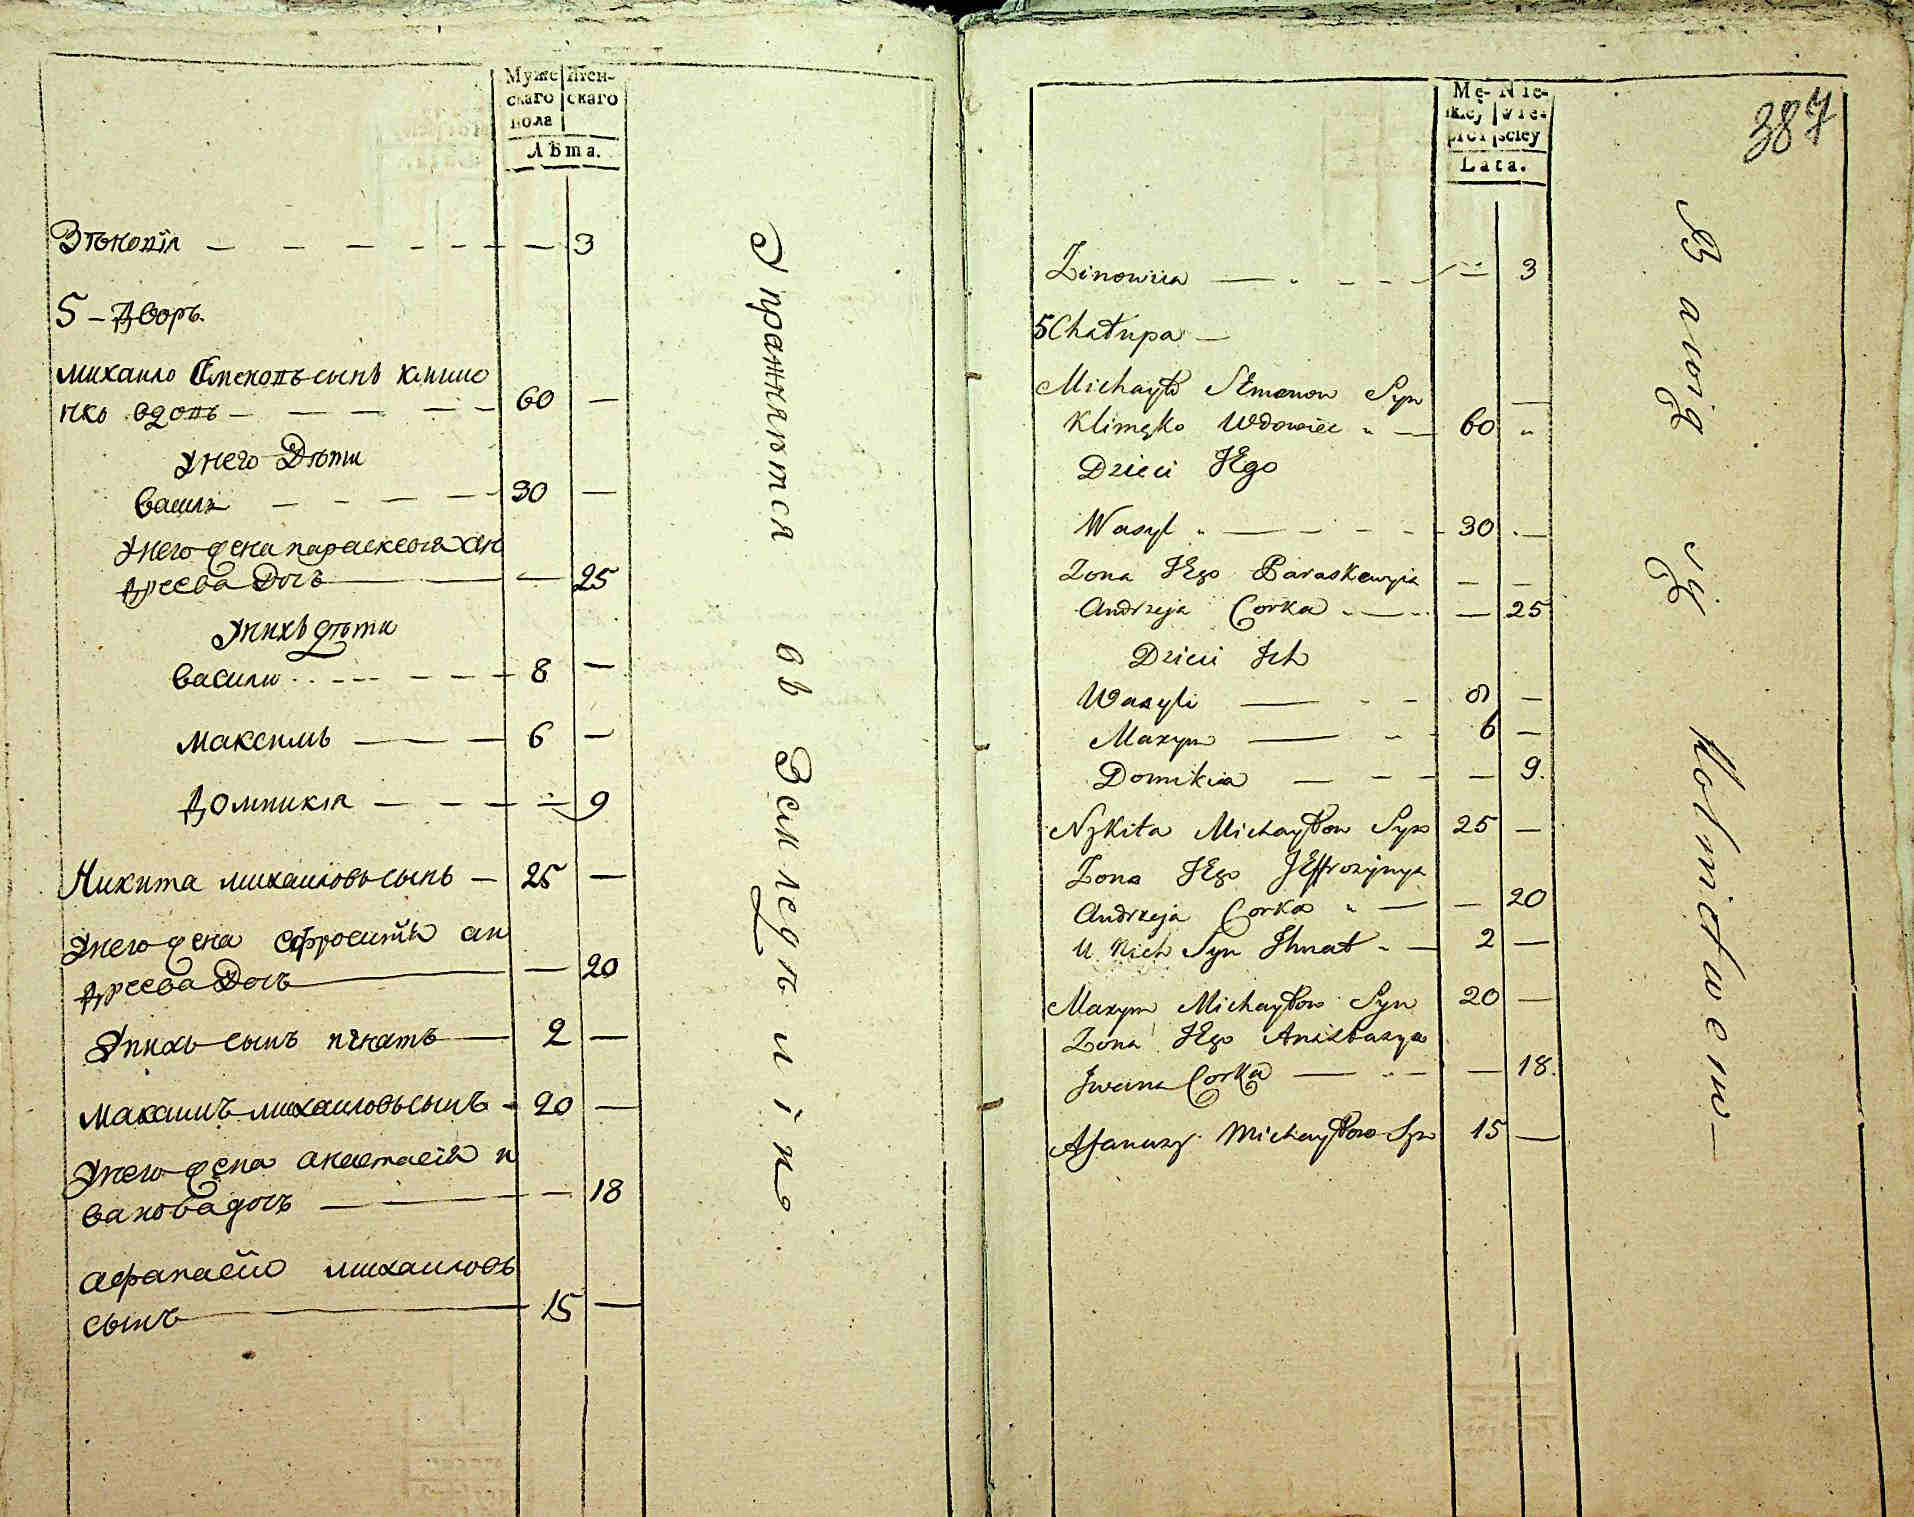 Муже скаго пола
Женскаго
Лѣта.
Зѣновія — — — — — — — 3
5 – Дворъ.
михаило Семеновъ сынъ климе
нко вдовъ — — — — — 60 —
Унего Дѣти
василь — — — — 30 —
Унего жена параскевія ан
дреева Дочъ — — — 25
Унихъ дѣти
василю — — — — 8 —
максимъ — — — 6 —
Домникія — — — — 9
Никита михаиловъ сынъ — 25 —
Унего жена ефросинія ан
дреева Дочъ — — 20
Унихъ сынъ игнатъ — 2 —
максимъ михаиловъ сынъ - 20 —
Унего жена анастасія и
ванова дочъ — — — 18
афанасію михаиловъ
сынъ — 15 —
Упражняются въ Земледѣліи
Mę-skiey płci
Nie-wieścley
Lata.
387
Zinowiia — — — — 3
5 Chałupa —
Michayło SEmenow Syn —
Klimęko Wdowiec — 60 "
Dzieci JEgo
Wasyl — — — — 30 —
Zona JEgo Paraskewyia — —
Andrzeja Corka — — 25
Dzieci Ich
Wasyli — — — 8 —
Maxym — — — 6 —
Domikia — — — — 9.
Nykita Michayłow Syn 25 —
Zona JEgo JEffrozynya
Andrzeja Corka — — 20
U Nich Syn Ihnat — 2 —
Maxym Michayłow Syn 20 —
Zona JEgo Anasztazya
Jwana Corka — — — 18.
Afanazy Michayłow Syn 15 —
Bawią się Rolnictwem —